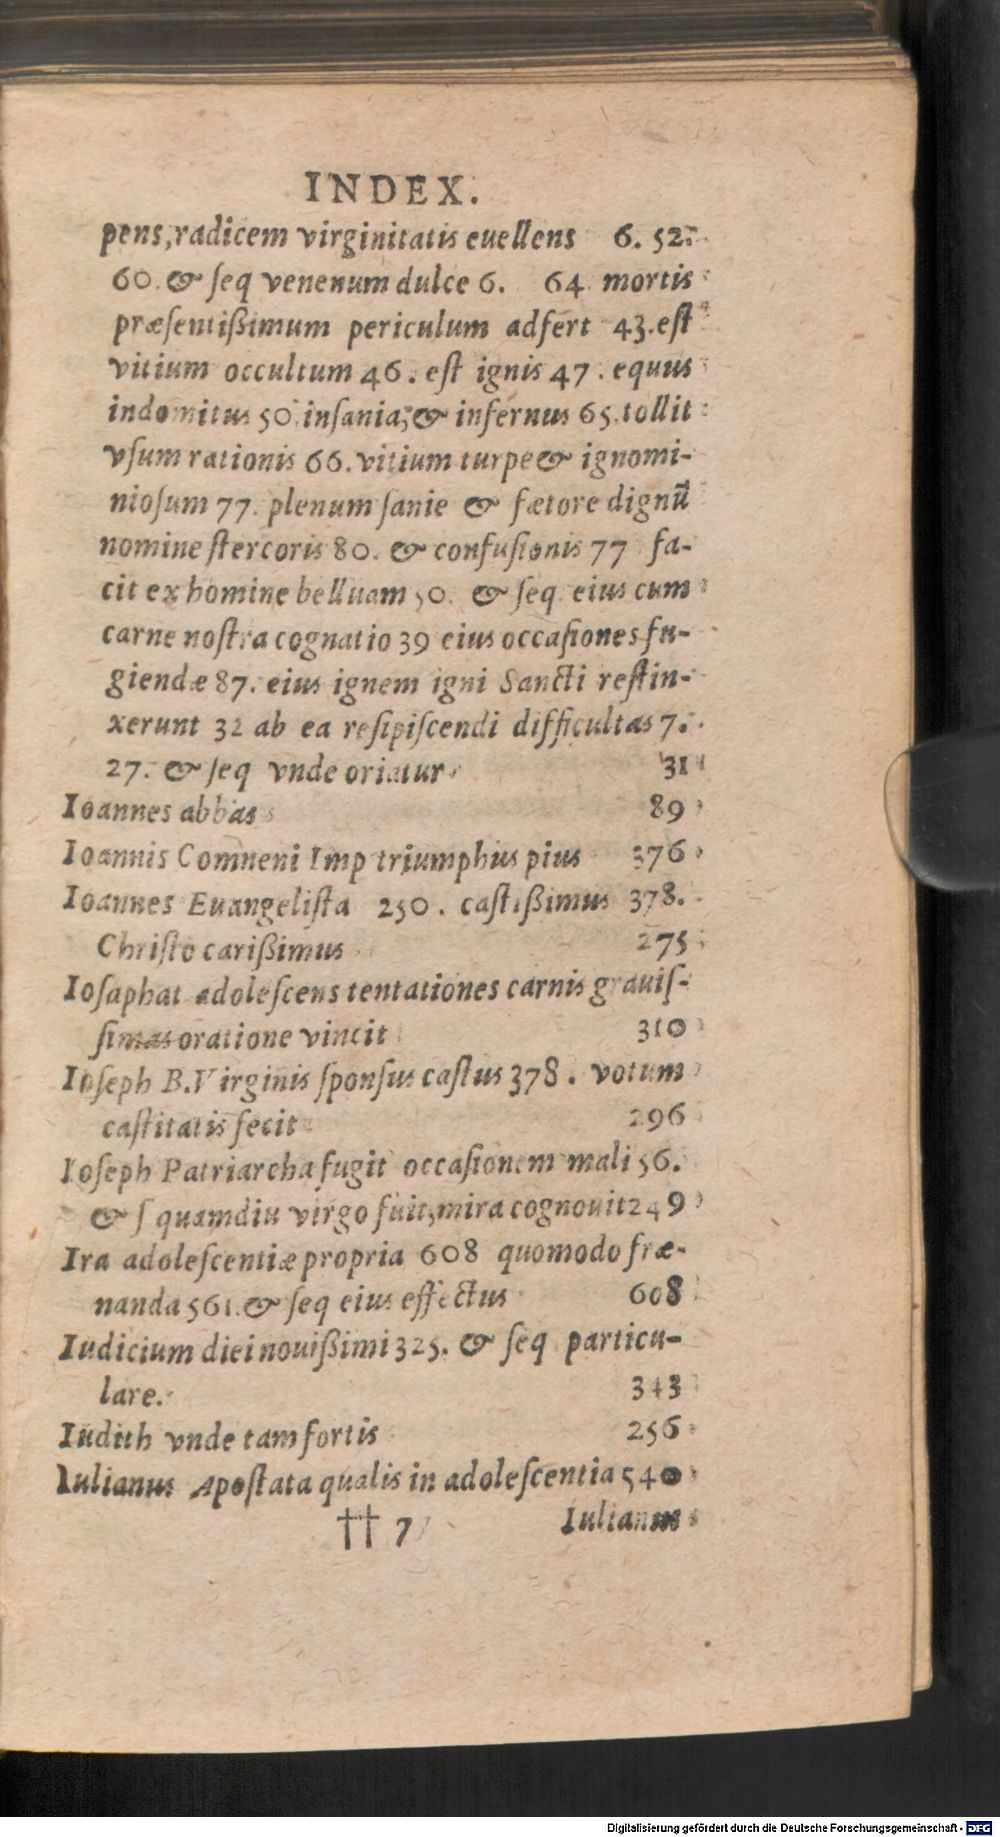 INDEX.
pens, radicem virginitatis euellens 6. 52.
60. & ſeq venenum dulce 6. 64 mortis
præſentißimum periculum adfert 43. eſt
vitium occultum 46. eſt ignis 47. equus
indomitus 50. inſania, & infernus 65. tollit
vſum rationis 66. vitium turpe & ignomi-
nioſum 77. plenum ſanie & fætore dignũ
nomine ſtercoris 80. & confuſionis 77 fa-
cit ex homine belluam 50. & ſeq. eius cum
carne noſtra cognatio 39 eius occaſiones fu-
giendæ 87. eius ignem igni Sancti reſtin-
xerunt 32 ab ea reſipiſcendi difficultas 7.
27. & ſeq vnde oriatur 31
Ioannes abbas 89
Ioannis Comneni Imp triumphus pius 376
Ioannes Euangeliſta 250. caſtißimus 378.
Chriſto carißimus 275
Ioſaphat adoleſcens tentationes carnis grauiſ-
ſimas oratione vincit 310
Ioſeph B. Virginis ſponſus caſtus 378. votum
caſtitatis fecit 296
Ioſeph Patriarcha fugit occaſionem mali 56.
& ſ quamdiu virgo fuit, mira cognouit 249
Ira adoleſcentiæ propria 608 quomodo fræ-
nanda 561. & ſeq eius effectus 608
Iudicium diei nouißimi 325. & ſeq particu-
lare. 343
Iudith vnde tam fortis 256
Iulianus Apoſtata qualis in adoleſcentia 540
†† 7 Iulianus
Digitalisierung gefördert durch die Deutsche Forschungsgemeinschaft - DFG